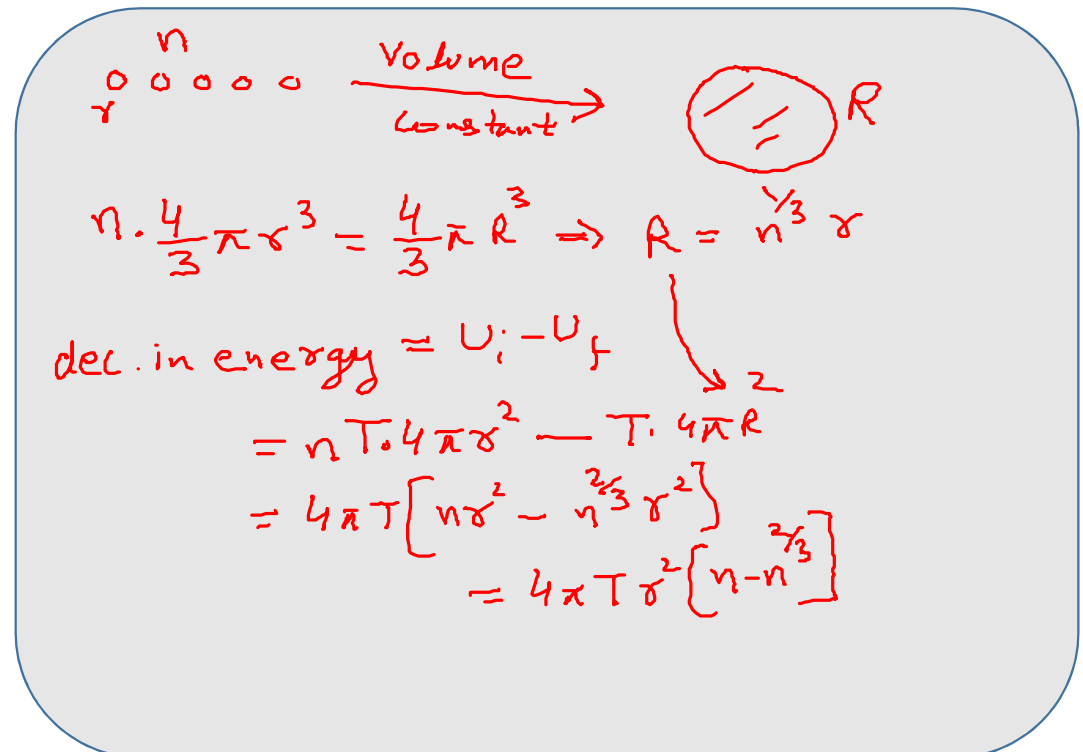 n
o o o o o Volume
r constant R
n. 4/3 πr³ = 4/3 π R³ ⇒ R = n^1/3 r
dec. in energy = Uᵢ - U_f
= n T. 4πr² — T. 4πR²
= 4πT[nr² - n^2/3 r²]
= 4πTr²[n-n^2/3]